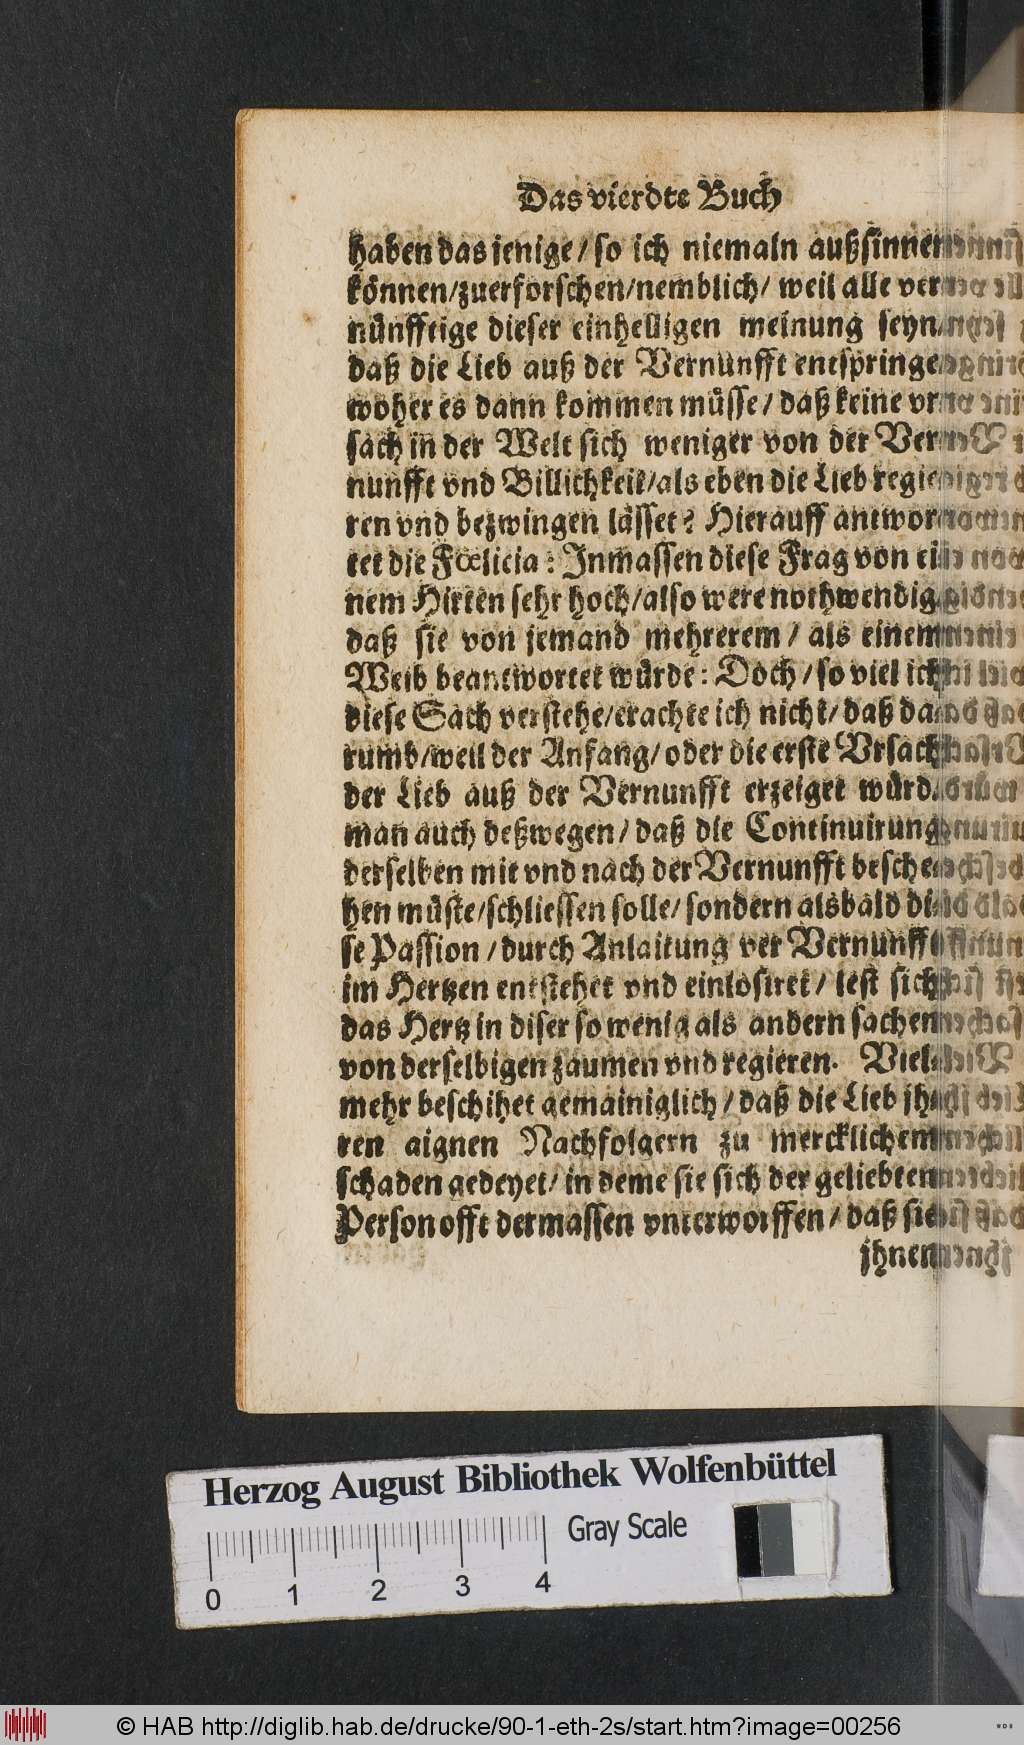 Das vierdte Buch
haben das jenige/ so ich niemaln außsinnen
können/zuerforschen/nemblich/ weil alle ver
nünfftige dieser einhelligen meinung seyn/
daß die Lieb auß der Vernunfft entspringe/
woher es dann kommen müsse/ daß keine vr
sach in der Welt sich weniger von der Ver
nunfft vnd Billichkeit/als eben die Lieb regie
ren vnd bezwingen lässet? Hierauff antwor
tet die Fœlicia: Inmassen diese Frag von ei
nem Hirten sehr hoch/also were nothwendig
daß sie von jemand mehrerem/ als einem
Weib beantwortet würde: Doch/ so viel ich
diese Sach verstehe/erachte ich nicht/ daß da
rumb/weil der Anfang/ oder die erste Vrsach
der Lieb auß der Vernunfft erzeiget würd/
man auch deßwegen/ daß die Continuirung
derselben mit vnd nach der Vernunfft besche
hen müste/schliessen solle/ sondern alsbald di
se Passion/ durch Anlaitung ver Vernunfft
im Hertzen entstehet vnd einlosiret/ lest sich
das Hertz in diser so wenig als andern sachen
von derselbigen zaumen vnd regieren. Viel
mehr beschihet gemainiglich/ daß die Lieb jh
ren aignen Nachfolgern zu mercklichem
schaden gedeyet/ in deme sie sich der geliebten
Person offt dermassen vnterworffen/ daß sie
jhnen
Herzog August Bibliothek Wolfenbüttel
Gray Scale
0 1 2 3 4
© HAB http://diglib.hab.de/drucke/90-1-eth-2s/start.htm?image=00256